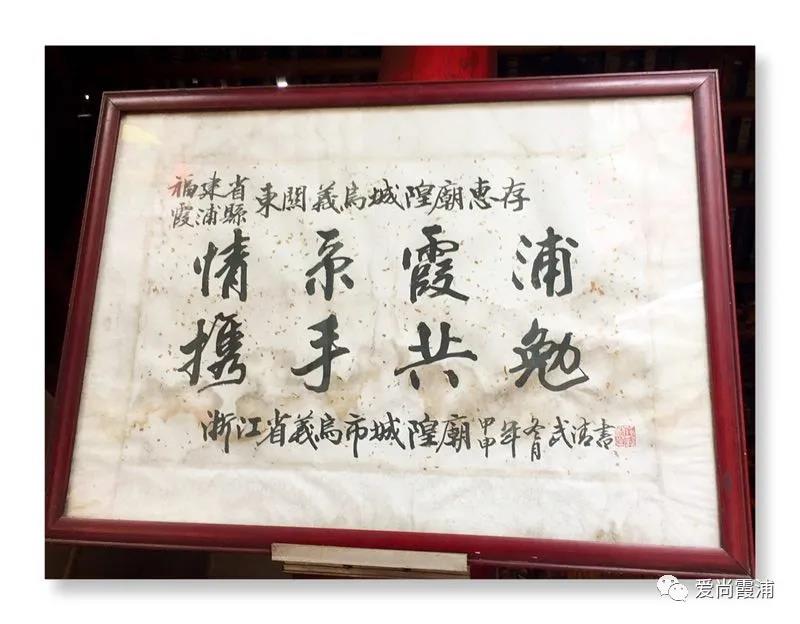 福建省
霞浦縣
東關義烏城隍廟惠存
情系霞浦
携手共勉
浙江省義烏市城隍廟甲申年冬月武浩書
爱尚霞浦